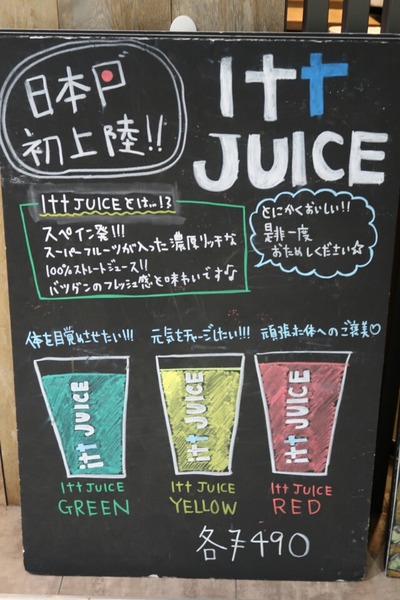 日本
初上陸!!
ITT
JUICE
ITT JUICEとは…!?
スペイン発!!!
スーパーフルーツが入った濃厚リッチな
100%ストレートジュース!!
バツグンのフレッシュ感と味わいです♪
とにかくおいしい!!
是非一度
おためしください☆
体を目覚めさせたい!!!
元気をチャージしたい!!!
頑張った体へのご褒美♡
itt JUICE
itt JUICE
itt JUICE
ITT JUICE
GREEN
ITT JUICE
YELLOW
ITT JUICE
RED
各¥490